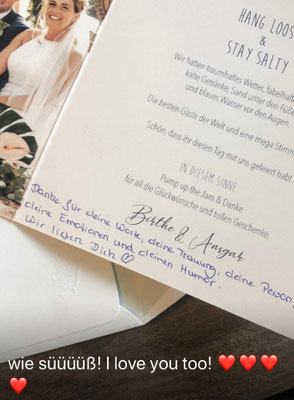 HANG LOOS
&
STAY SALTY
Wir hatten traumhaftes Wetter, fabelhaft
kalte Getränke, Sand unter den Füße
und blaues Wasser vor den Augen.
Die besten Gäste der Welt und eine mega Stimm
Schön, dass ihr diesen Tag mit uns gefeiert habt
IN DIESEM SINNE
Pump up the Jam & Danke
für all die Glückwünsche und tollen Geschenke.
Birthe & Ansgar
Danke für deine Worte, deine Trauung, deine Person,
deine Emotionen und deinen Humor.
Wir lieben Dich ♡
wie süüüüß! I love you too! ❤️❤️❤️
❤️